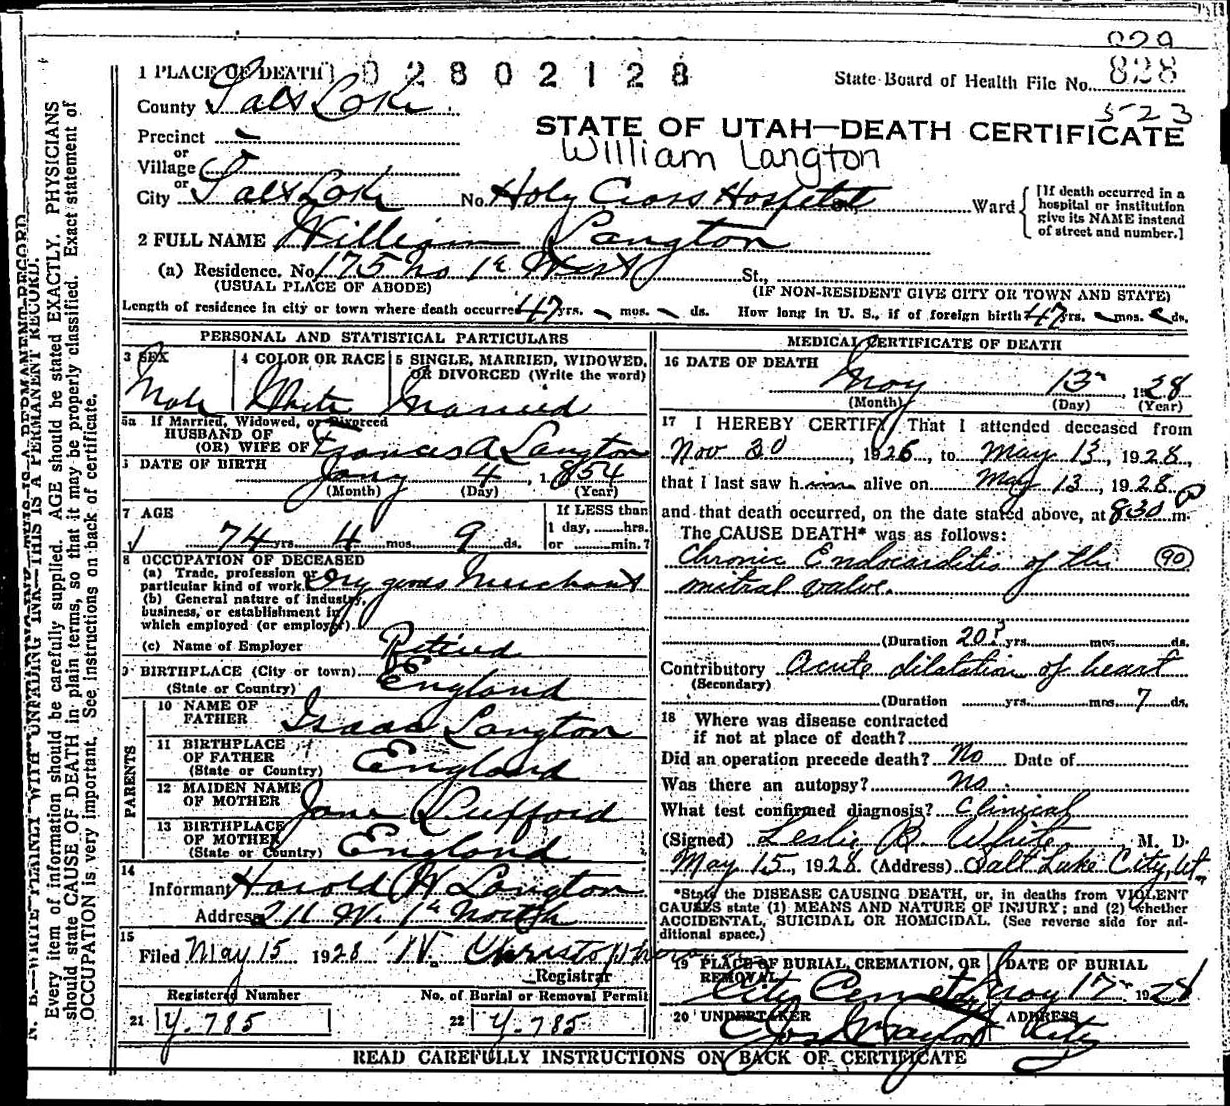 829
1 PLACE OF DEATH 0 2 8 0 2 1 2 8 State Board of Health File No. 828
County Salt Lake 523
Precinct
STATE OF UTAH—DEATH CERTIFICATE
or
William Langton
Village
or
City Salt Lake No. Holy Cross Hospital Ward
[If death occurred in a hospital or institution give its NAME instead of street and number.]
2 FULL NAME William Langton
(a) Residence. No. 175 No 1st West St.,
(USUAL PLACE OF ABODE) (IF NON-RESIDENT GIVE CITY OR TOWN AND STATE)
Length of residence in city or town where death occurred 47 yrs. mos. ds. How long in U. S., if of foreign birth 47 yrs. mos. ds.
PERSONAL AND STATISTICAL PARTICULARS
3 SEX 4 COLOR OR RACE 5 SINGLE, MARRIED, WIDOWED, OR DIVORCED (Write the word)
Male White Married
5a If Married, Widowed, or Divorced
HUSBAND OF
(OR) WIFE OF Frances A Langton
6 DATE OF BIRTH Jany 4, 1854
(Month) (Day) (Year)
7 AGE If LESS than
1 day, ......hrs.
74 yrs. 4 mos. 9 ds. or ......min.?
8 OCCUPATION OF DECEASED
(a) Trade, profession or
particular kind of work Dry goods Merchant
(b) General nature of industry,
business, or establishment in
which employed (or employer)
(c) Name of Employer Retired
9 BIRTHPLACE (City or town)
(State or Country) England
PARENTS
10 NAME OF
FATHER Isaac Langton
11 BIRTHPLACE
OF FATHER England
(State or Country)
12 MAIDEN NAME
OF MOTHER Jane
13 BIRTHPLACE
OF MOTHER England
(State or Country)
14
Informant Harold W Langton
Address 211 W. 1st North
15
Filed May 15 1928
Registrar
Registered Number No. of Burial or Removal Permit
21 Y-785 22 Y-785
MEDICAL CERTIFICATE OF DEATH
16 DATE OF DEATH May 13, 1928
(Month) (Day) (Year)
17 I HEREBY CERTIFY That I attended deceased from
Nov 30, 1926, to May 13, 1928,
that I last saw him alive on May 13, 1928
and that death occurred, on the date stated above, at 830 P m.
The CAUSE DEATH* was as follows:
Chronic Endocarditis of the (90)
mitral valve.
(Duration 20? yrs. mos. ds.
Contributory Acute dilatation of heart
(Secondary)
(Duration yrs. mos. 7 ds.
18 Where was disease contracted
if not at place of death?
Did an operation precede death? No Date of
Was there an autopsy? No.
What test confirmed diagnosis? Clinical
(Signed) Leslie B White M. D.
May 15, 1928 (Address) Salt Lake City, Ut.
*State the DISEASE CAUSING DEATH, or, in deaths from VIOLENT
CAUSES state (1) MEANS AND NATURE OF INJURY; and (2) whether
ACCIDENTAL, SUICIDAL OR HOMICIDAL. (See reverse side for ad-
ditional space.)
19 PLACE OF BURIAL, CREMATION, OR REMOVAL DATE OF BURIAL
City Cemetery May 17 1928
20 UNDERTAKER ADDRESS
Jos Wm Taylor City
READ CAREFULLY INSTRUCTIONS ON BACK OF CERTIFICATE
N. B.—WRITE PLAINLY WITH UNFADING INK—THIS IS A PERMANENT RECORD.
Every item of information should be carefully supplied. AGE should be stated EXACTLY. PHYSICIANS
should state CAUSE OF DEATH in plain terms, so that it may be properly classified. Exact statement of
OCCUPATION is very important. See instructions on back of certificate.